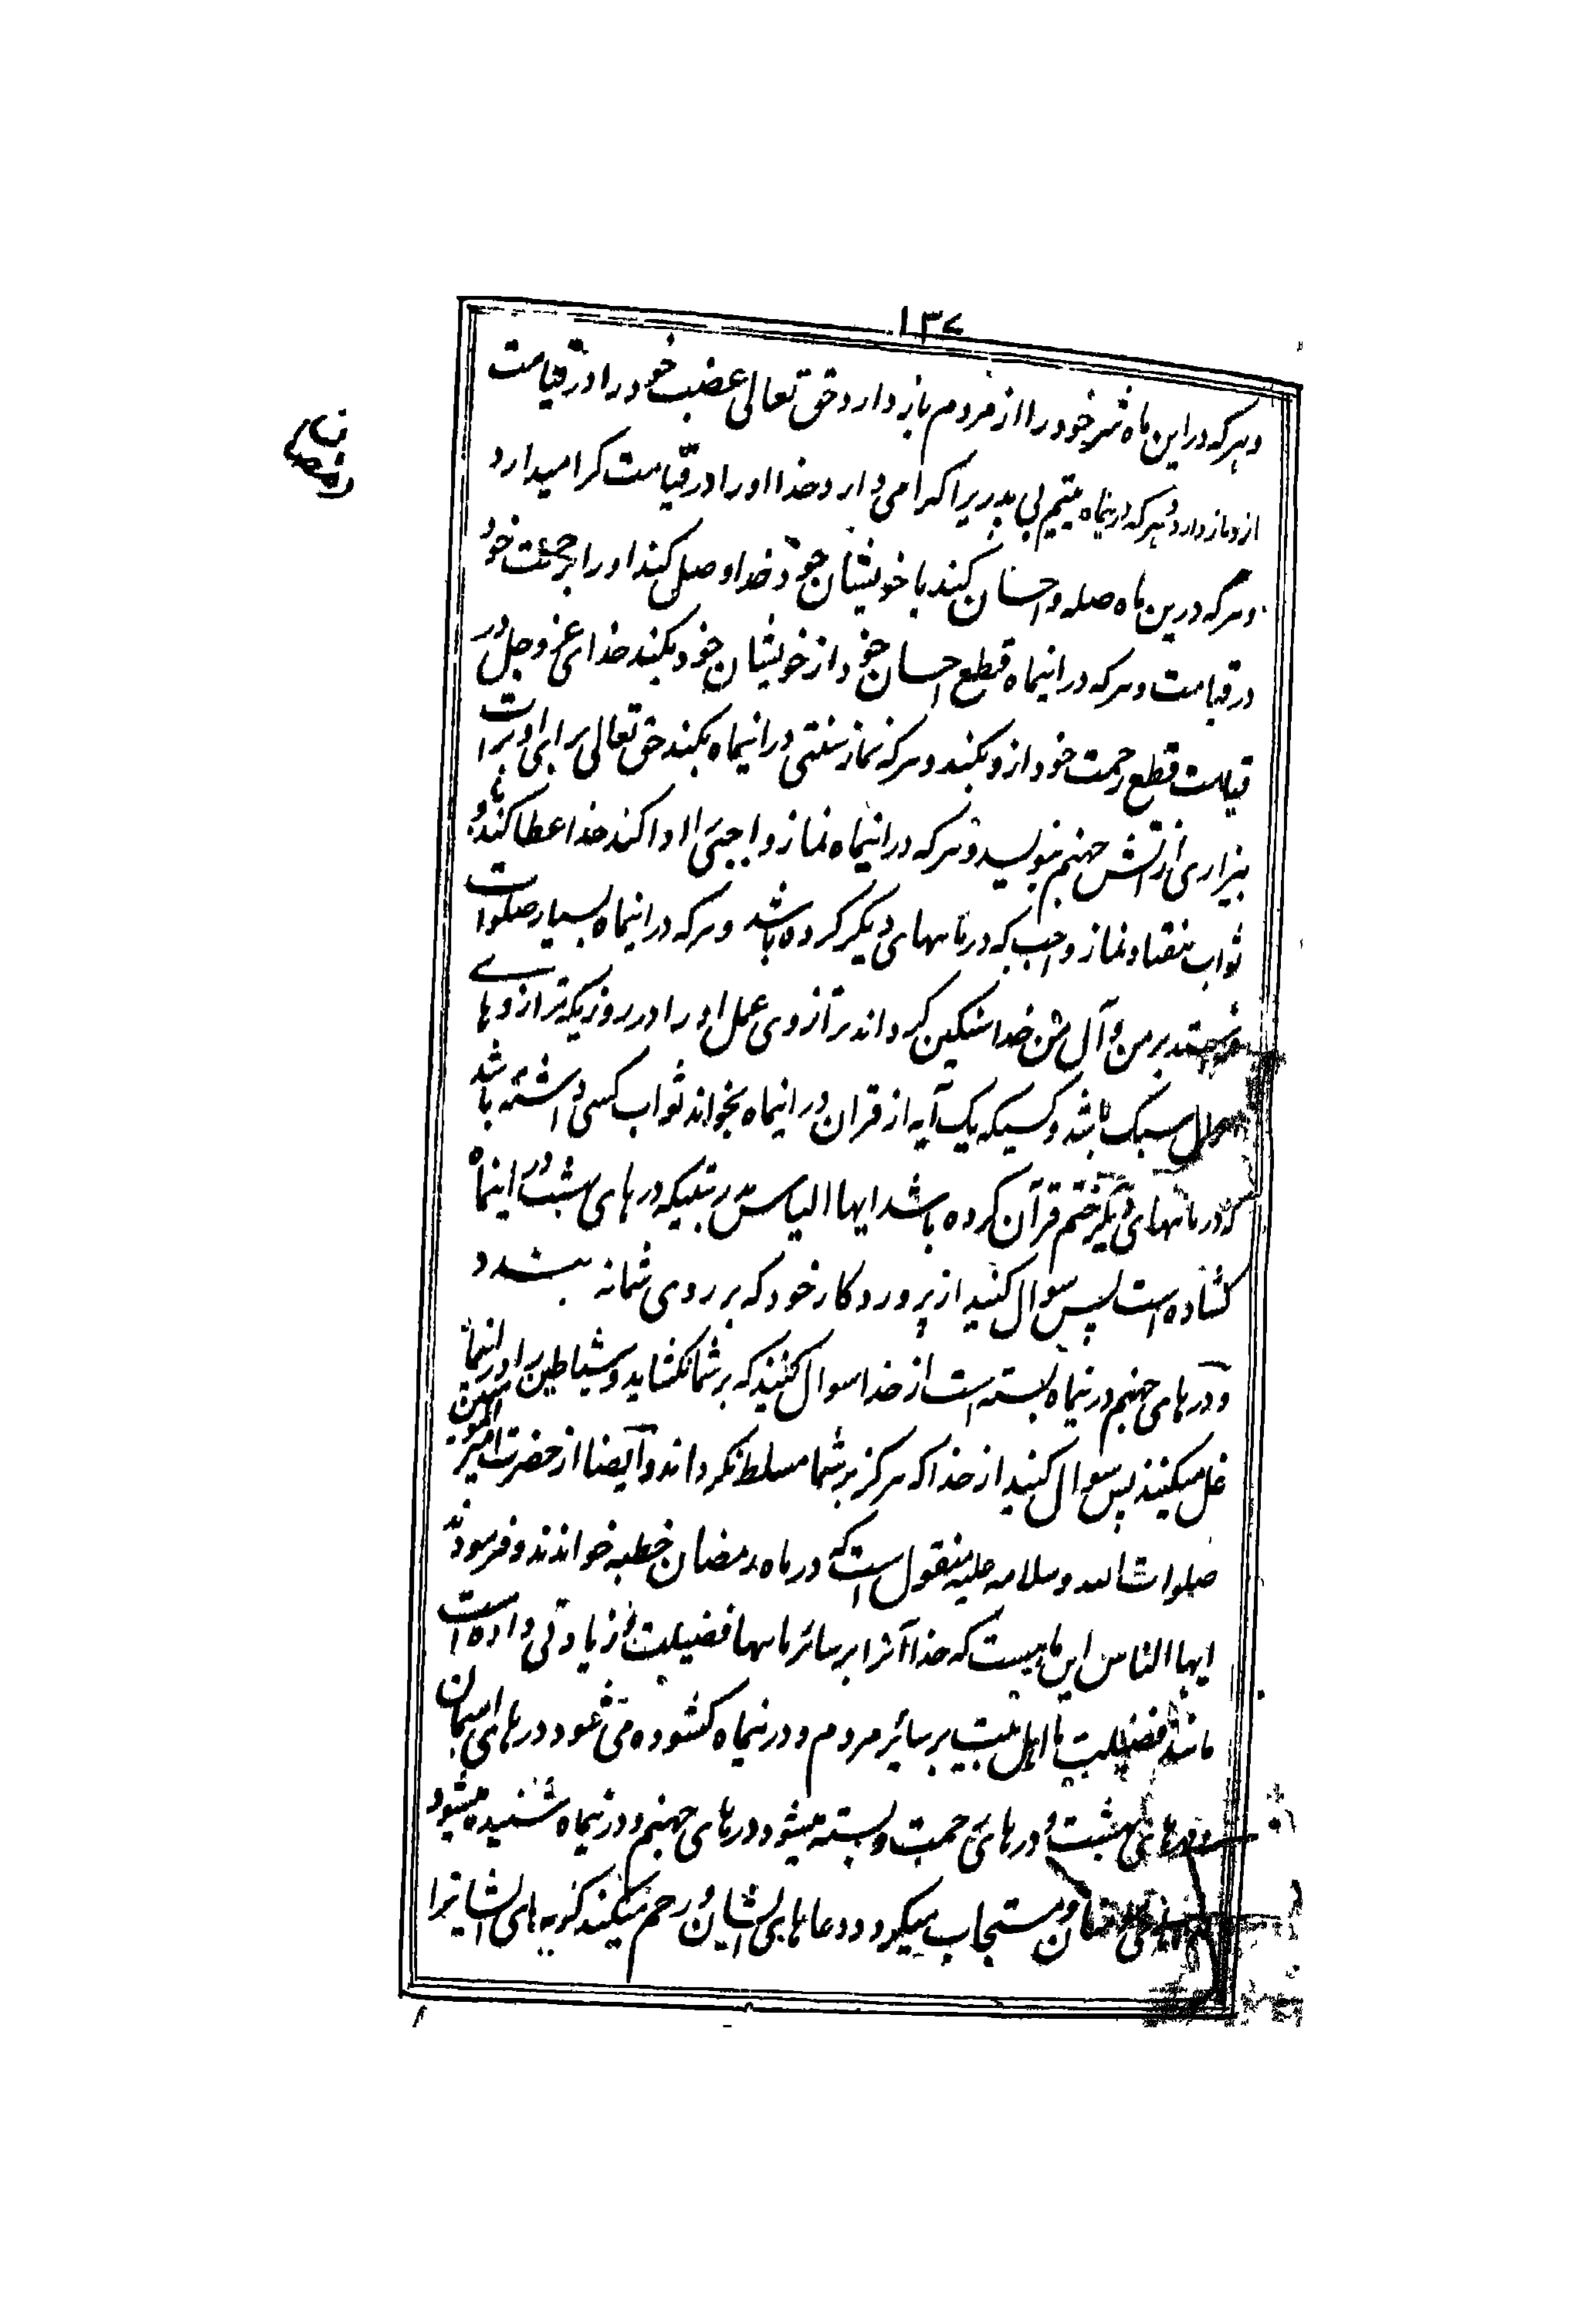 ١٣٧
وهرکه دراین ماه شر خود را از مردم باز دارد حق تعالی غضب خود را در قیامت
ازو باز دارد و هرکه درینماه یتیم بی پدریرا کرامی دارد خدا او را در قیامت کرامیدارد
وهرکه درین ماه صله و احسان کند با خویشان خود خدا وصل کند او را برحمت خود
در قیامت وهرکه در اینماه قطع احسان خود از خویشان خود بکند خدای عز وجل در
قیامت قطع رحمت خود ازو بکند وهرکه نماز سنتی در اینماه بکند حق تعالی برای او برات
بیزاری از اتش جهنم بنویسد و هرکه در اینماه نماز واجبی را ادا کند خدا عطا کند باو
ثواب هفتاد نماز واجب که در ماههای دیکر کرده باشد وهرکه در اینماه بسیار صلوات
بفرستد بر من و آل من خدا سنکین کرداند ترازوی عمل او را در روزیکه ترازوهای
اعمال سبک باشد و کسیکه یک آیه از قران در اینماه بخواند ثواب کسی داشته باشد
که در ماههای دیکر ختم قرآن کرده باشد ایها الناس بدرستیکه درهای بهشت در اینماه
کشاده است پس سوال کنید از پروردکار خود که بر روی شما نه بندد
و درهای جهنم درینماه بسته است از خدا سوال کنید که بر شما نکشاید و شیاطین را در اینماه
غل میکنند پس سوال کنید از خدا که هرکز بر شما مسلط نکرداند و ایضا از حضرت امیر المومنین
صلوات الله وسلامه علیه منقول است که در ماه رمضان خطبه خواندند و فرمودند
ایها الناس این ماهیست که خدا آنرا بر سائر ماهها فضیلت و زیادتی داده است
مانند فضیلت ما اهل بیت بر سائر مردم و درینماه کشوده می شود درهای اسمان
و درهای بهشت و درهای رحمت و بسته میشود درهای جهنم و درینماه شنیده میشود
و مستجاب میکردد دعاهای ایشان و رحم میکنند کریه های ایشانرا